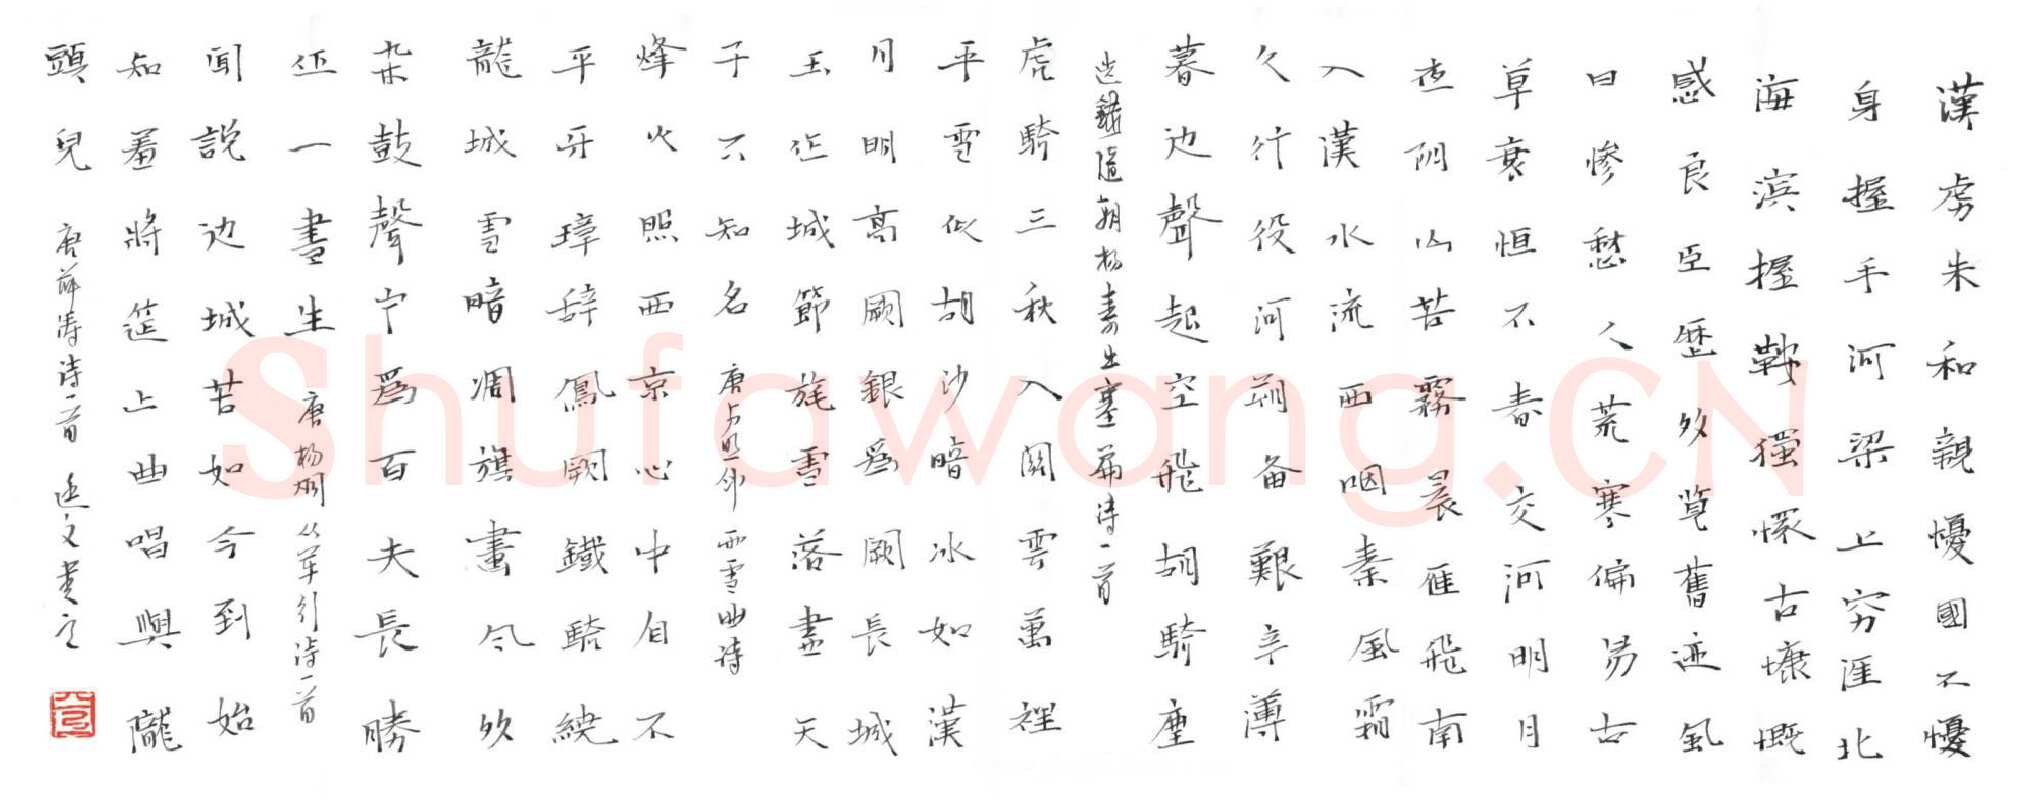 漢虜未和親憂國不憂
身握手河梁上窮涯北
海濱握鞍獨懷古慷慨
感良臣歷覽舊迹風
日慘愁人荒寒偏易古
草衰恒不春交河明月
夜陰山苦霧晨雁飛南
入漢水流西咽秦風霜
久行役河朔备艱辛薄
暮边聲起空飛胡騎塵
选錄隨朝杨素出塞篇诗一首
虎騎三秋入關雲萬裡
平雪似胡沙暗冰如漢
月明高闕銀爲闕長城
玉作城節旄雪落盡天
子不知名 唐卢照邻雨雪曲诗
烽火照西京心中自不
平牙璋辞鳳闕鐵騎繞
龍城雪暗凋旗畫风
杂鼓聲宁爲百夫長勝
作一書生 唐杨炯从军行诗一首
聞說边城苦如今到始
知羞將筵上曲唱與隴
頭兒 唐薛涛诗一首 逸文书之
Shufawang.CN